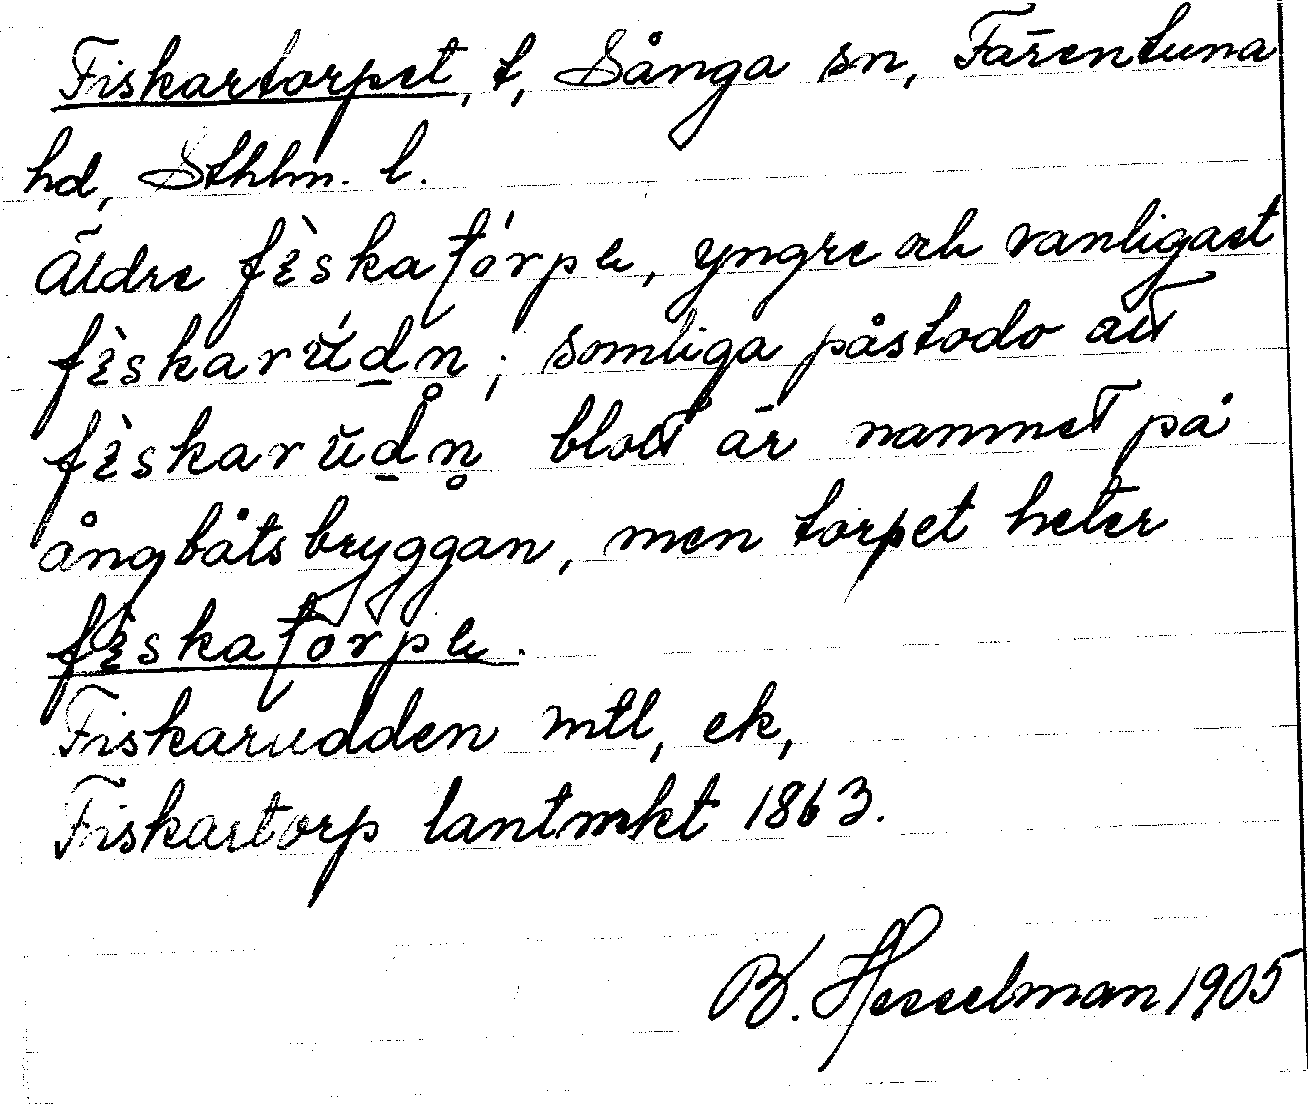 Fiskartorpet, t, Sånga sn, Färentuna
hd, Sthlm. l.
Äldre fìskatórpe, yngre och vanligast
fìskarúdn̥; somliga påstodo att
fìskarudn̥ blott är namnet på
ångbåtsbryggan, men torpet heter
fìskatorpe.
Fiskarudden mtl, ek,
Fiskartorp lantmkt 1863.
B. Hesselman 1905